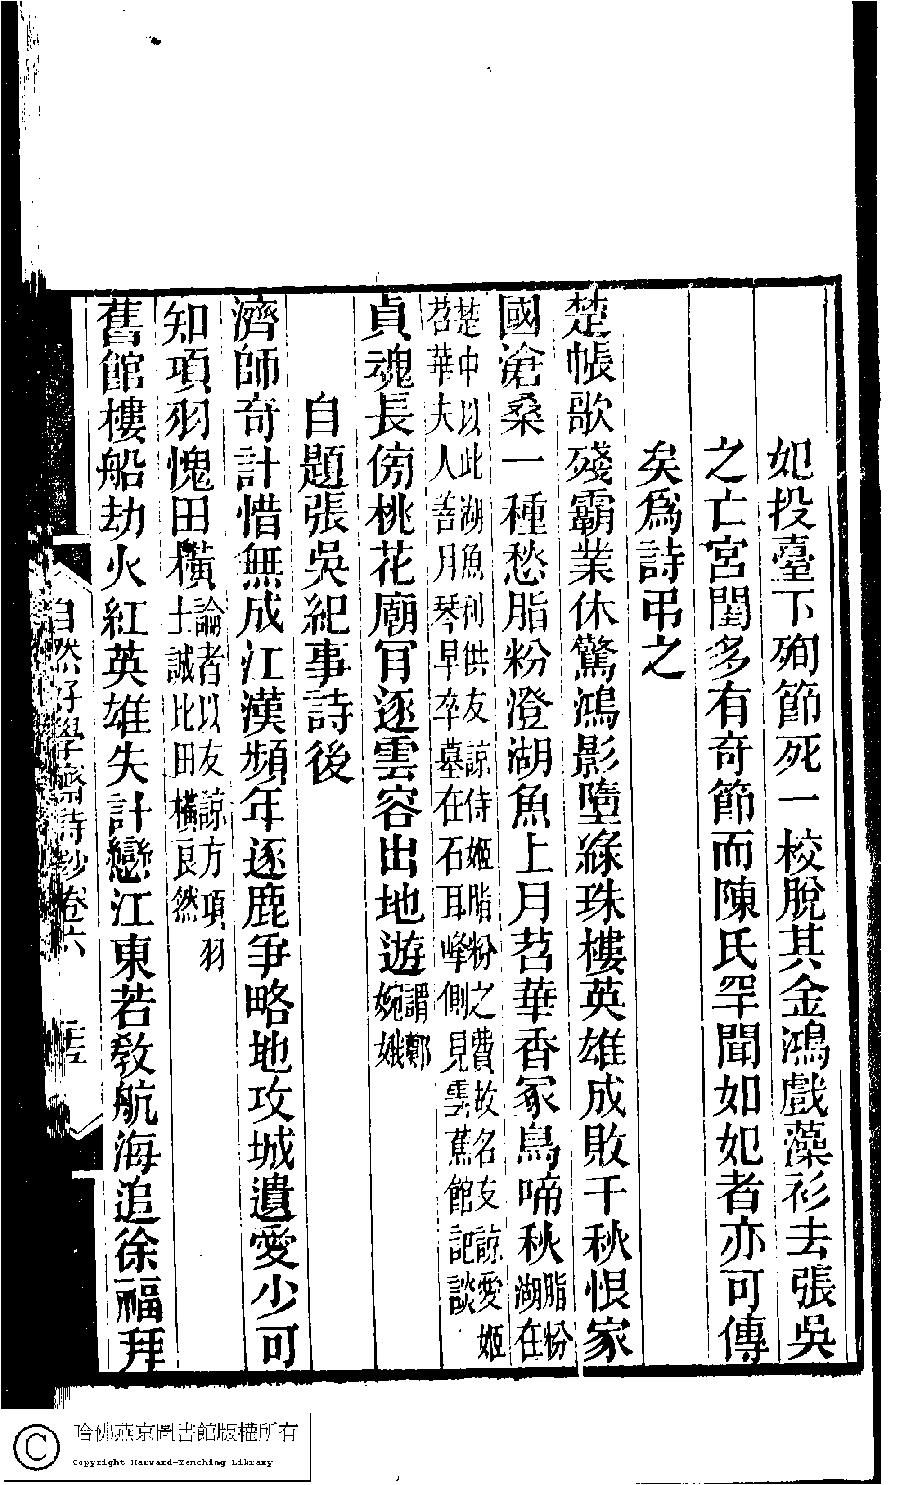 妃投臺下殉節死一校脫其金鴻戲藻衫去張吳
之亡宮閨多有奇節而陳氏罕聞如妃者亦可傳
矣爲詩弔之
楚帳歌殘霸業休驚鴻影墮綠珠樓英雄成敗千秋恨家
國滄桑一種愁脂粉澄湖魚上月苕華香冢鳥啼秋脂粉湖在
楚中以此湖魚利供友諒侍姬脂粉之費故名友諒愛姬
苕華夫人善月琴早卒墓在石耳峰側見雲蕉館記談
貞魂長傍桃花廟肎逐雲容出地遊謂鄭婉娥
自題張吳紀事詩後
濟師奇計惜無成江漢頻年逐鹿爭略地攻城遺愛少可
知項羽愧田橫論者以友諒方項羽士誠比田橫良然
舊館樓船劫火紅英雄失計戀江東若教航海追徐福拜
自然好學齋詩鈔卷六
哈佛燕京圖書館版權所有
Copyright Harvard-Yenching Library